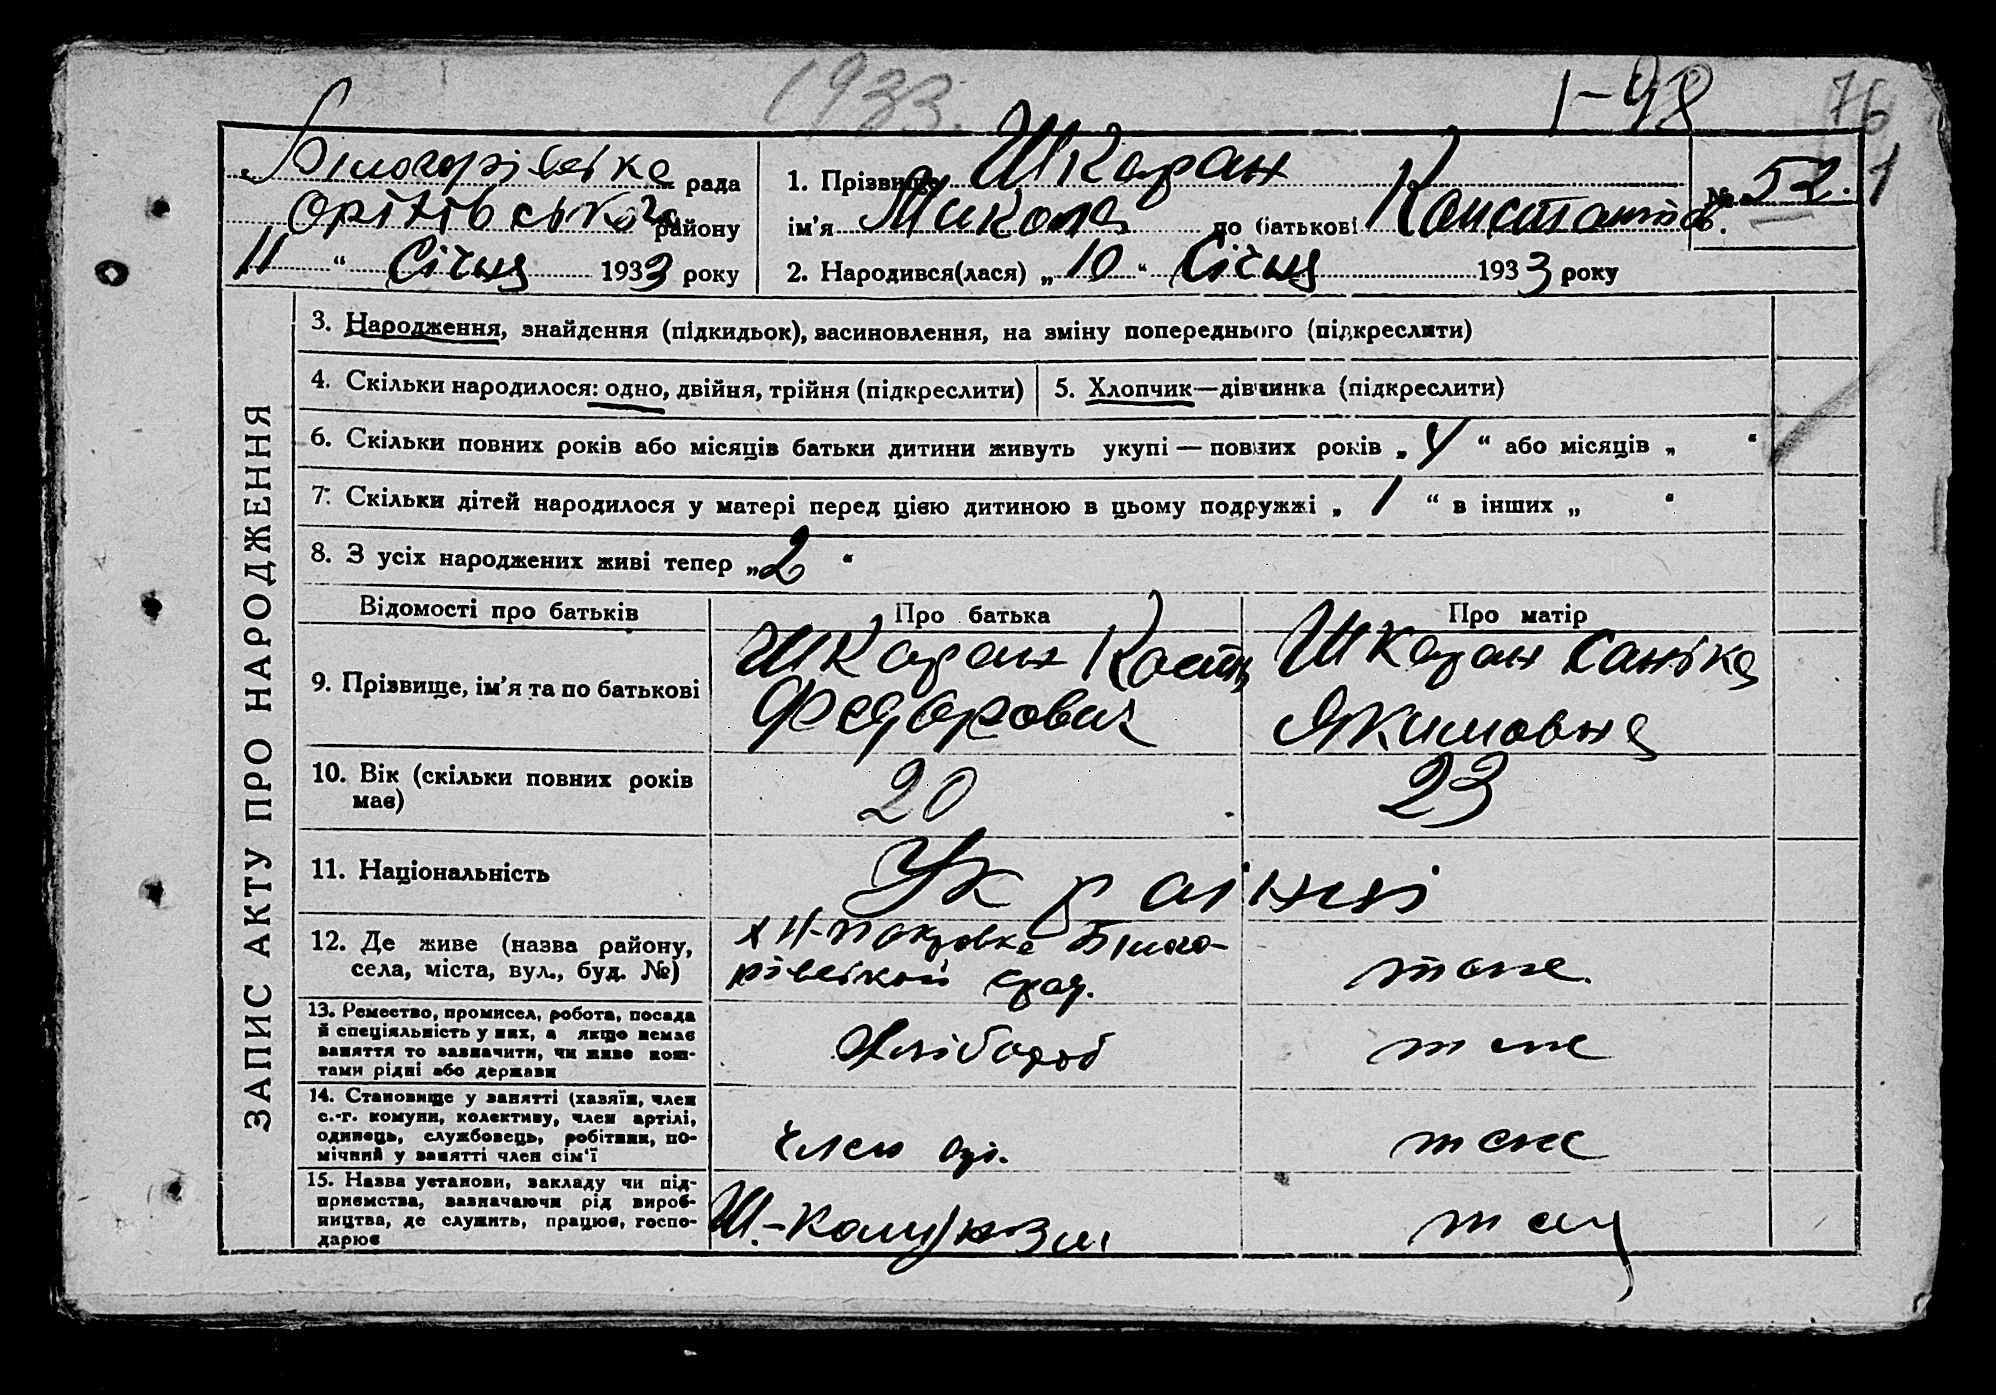 1933.
1–98
76
1
Білогорівська рада
Оріхівського району
11 “ Січня 1933 року
1. Прізвище Шкаран
ім’я Микола по батькові Константинов.
№ 52.
2. Народився(лася) „ 10 “ Січня 1933 року
ЗАПИС АКТУ ПРО НАРОДЖЕННЯ
3. Народження, знайдення (підкидьок), васиновлення, на зміну попереднього (підкреслити)
4. Скільки народилося: одно, двійня, трійня (підкреслити)
5. Хлопчик—дівчинка (підкреслити)
6. Скільки повних років або місяців батьки дитини живуть укупі — повних років „ 4 “ або місяців „ “
7. Скільки дітей народилося у матері перед цією дитиною в цьому подружжі „ 1 “ в інших „ “
8. З усіх народжених живі тепер „ 2 “
Відомості про батьків
Про батька
Про матір
9. Прізвище, ім’я та по батькові
Шкаран Кост
Федорович
Шкаран Саніка
Якимовна
10. Вік (скільки повних років
має)
20
23
11. Національність
Українці
12. Де живе (назва району,
села, міста, вул., буд. №)
х Н-Покровка Білого-
рівської
теж
13. Ремество, промисел, робота, посада
й спеціяльність у них, а якщо немає
заняття то зазначити, чи живе кош-
тами рідні або держави
Хлібороб
теж
14. Становище у занятті (хазяїн, член
с.-г. комуни, колективу, член артілі,
одинець, службовець, робітник, по-
мічний у занятті член сім’ї
член арт.
теж
15. Назва установи, закладу чи під-
приємства, зазначаючи рід вироб-
ництва, де служить, працює, госпо-
дарює